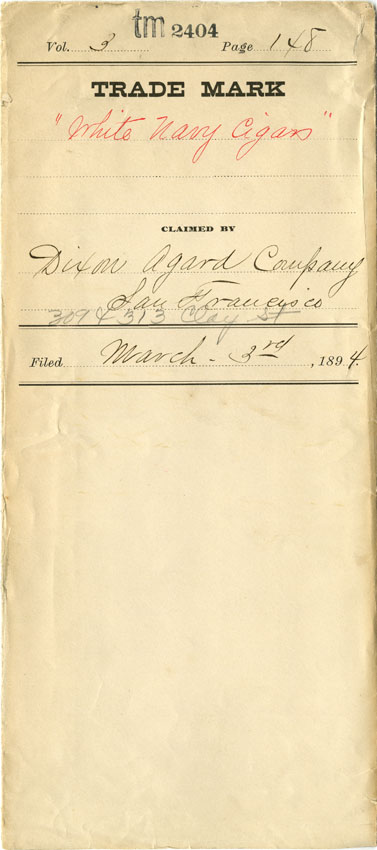 tm 2404
Vol. 3 Page 148
TRADE MARK
"White Navy Cigars"
CLAIMED BY
Dixon Agard Company
San Francisco
309 & 313 Clay St
Filed March - 3rd, 1894.